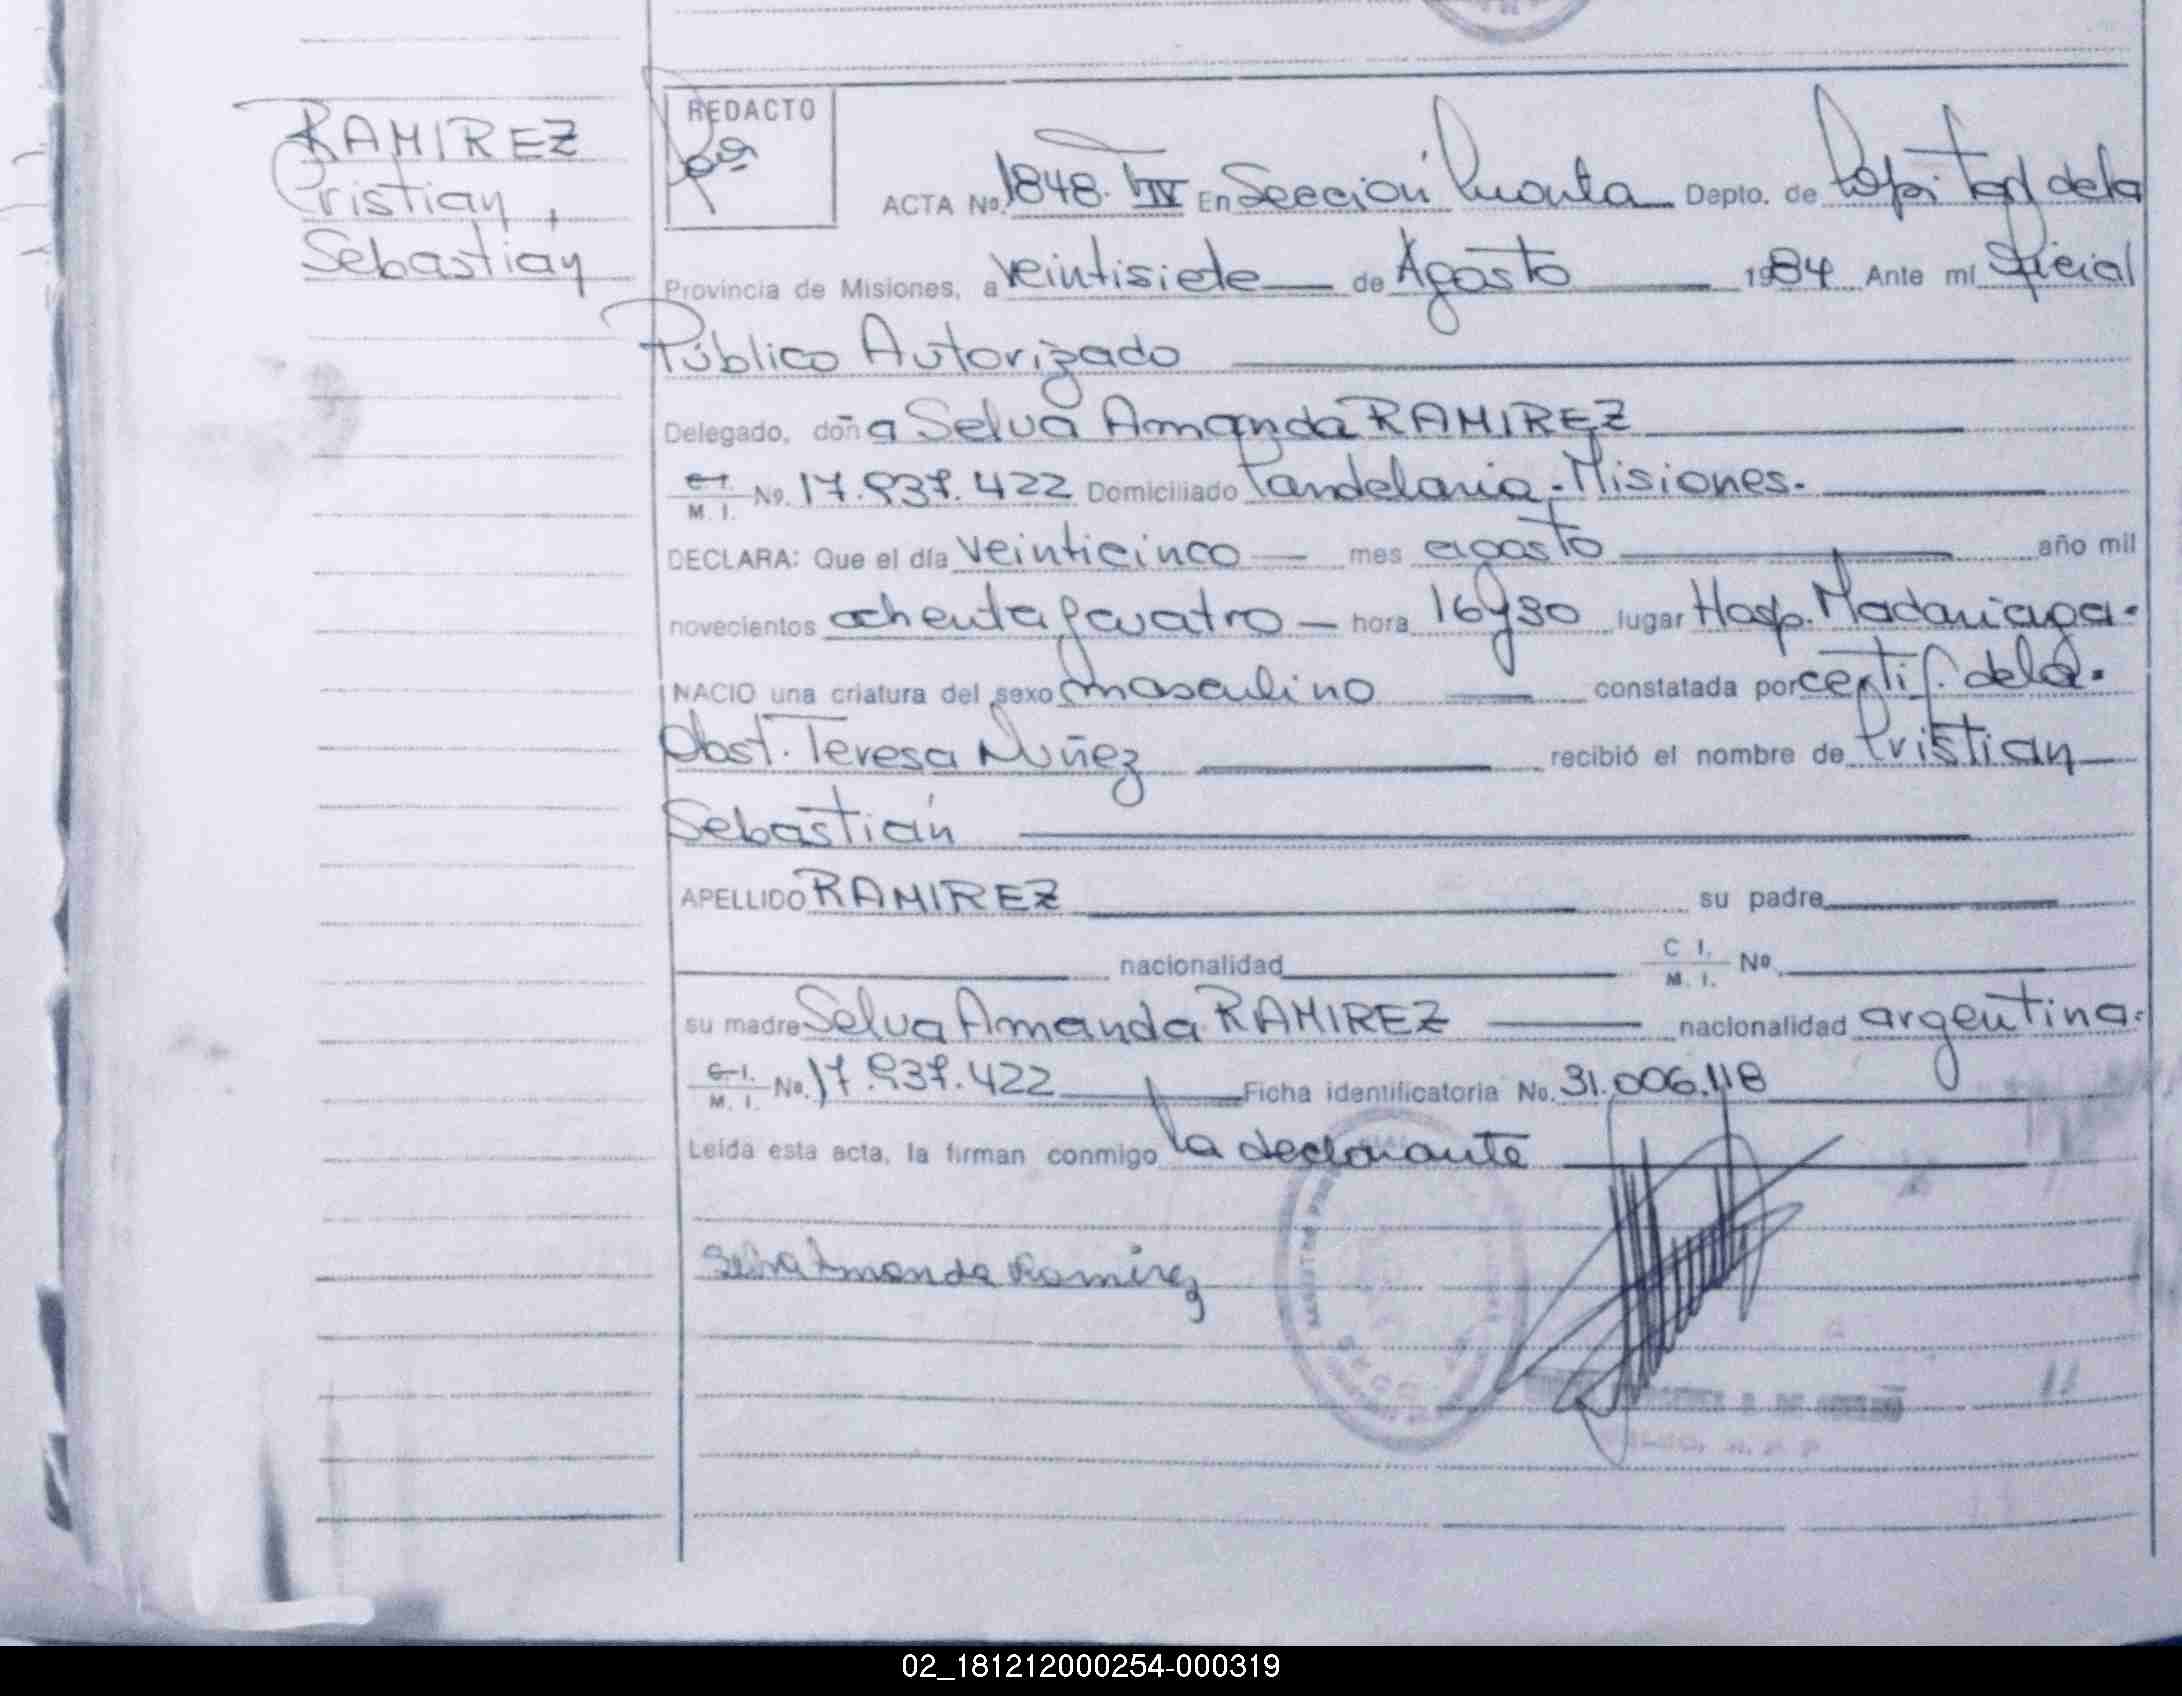 RAMIREZ
Cristian,
Sebastián
REDACTO
ACTA No. 1848. T IV En Sección Cuarta Depto. de Capital de la
Provincia de Misiones, a veintisiete de Agosto 1984 Ante mi Oficial
Público Autorizado
Delegado, doña Selva Amanda RAMIREZ
C. I.
M. I. No. 17.937.422 Domiciliado Candelaria - Misiones.
DECLARA: Que el día veinticinco mes agosto año mil
novecientos ochenta y cuatro hora 16 y 30 lugar Hosp. Madariaga.
NACIO una criatura del sexo masculino constatada por certif. de la.
Obst. Teresa Nuñez recibió el nombre de Cristian
Sebastián
APELLIDO RAMIREZ su padre
nacionalidad C I.
M. I. No.
su madre Selva Amanda RAMIREZ nacionalidad argentina.
C. I.
M. I. No. 17.937.422 Ficha identificatoria No. 31.006.118
Leída esta acta, la firman conmigo la declarante
Selva Amanda Ramirez
02_181212000254-000319